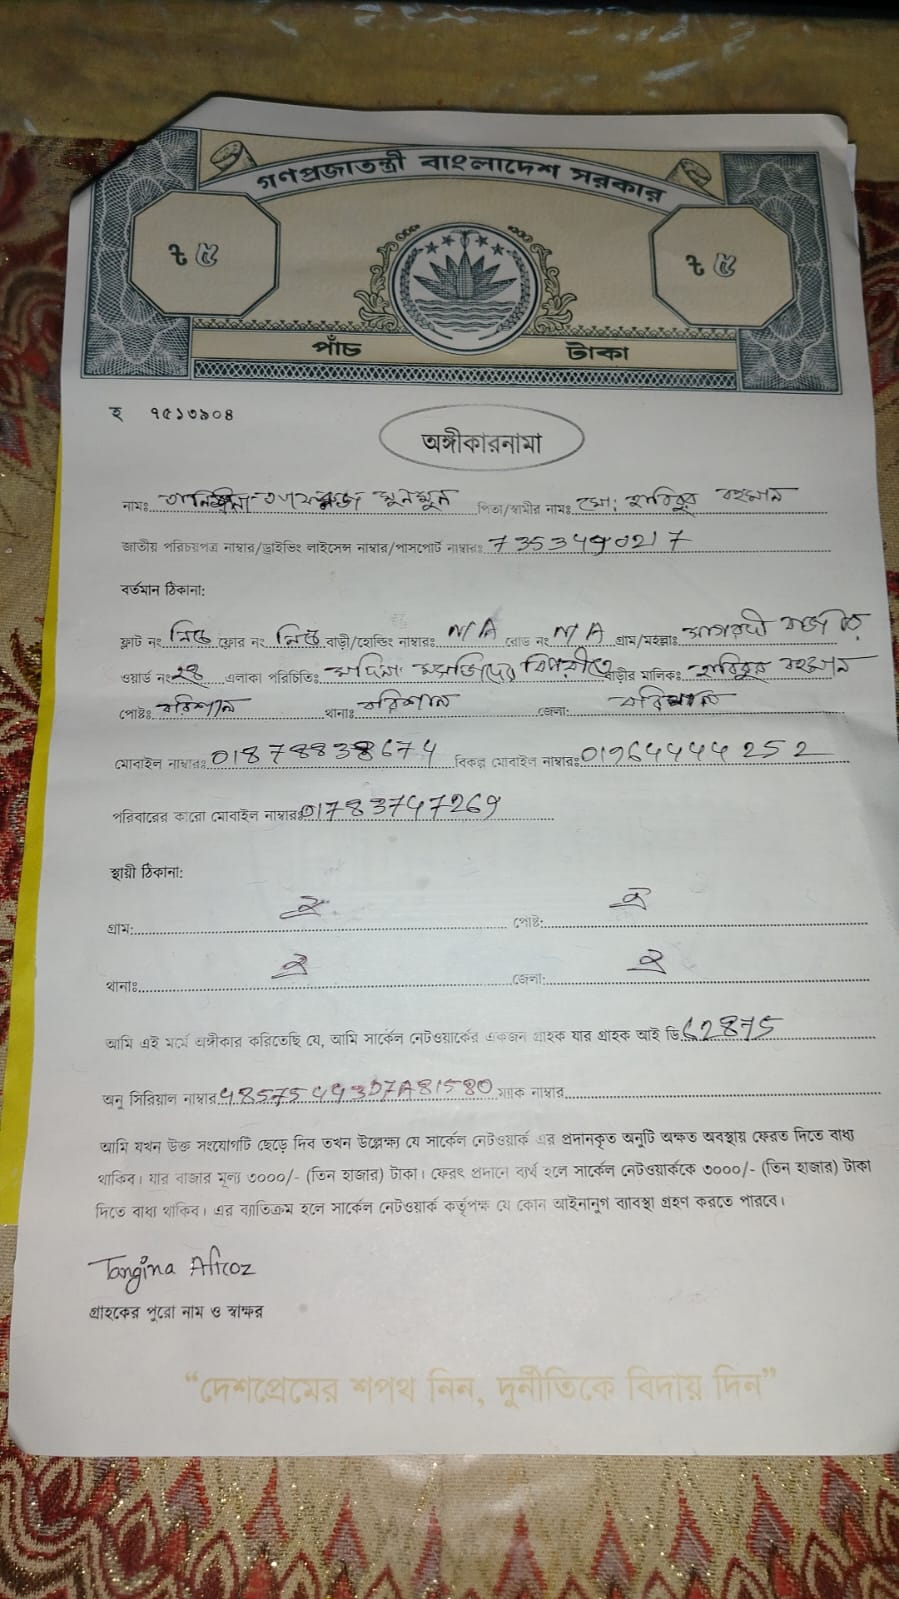 গণপ্রজাতন্ত্রী বাংলাদেশ সরকার
৳ ৫ ৳ ৫
পাঁচ টাকা
হ ৭৫১৩৯০৪
অঙ্গীকারনামা
নামঃ মুনমুন পিতা/স্বামীর নামঃ মো: হাবিবুর রহমান
জাতীয় পরিচয়পত্র নাম্বার/ড্রাইভিং লাইসেন্স নাম্বার/পাসপোর্ট নাম্বারঃ 7353490217
বর্তমান ঠিকানা:
ফ্লাট নং নিচে ফ্লোর নং নিচে বাড়ী/হোল্ডিং নাম্বারঃ N/A রোড নং N/A গ্রাম/মহল্লাঃ
ওয়ার্ড নং এলাকা পরিচিতিঃ মদিনা মসজিদের বিপরীতে বাড়ীর মালিকঃ হাবিবুর রহমান
পোষ্টঃ বরিশাল থানাঃ বরিশাল জেলা: বরিশাল
মোবাইল নাম্বারঃ 01878838674 বিকল্প মোবাইল নাম্বারঃ 01964444252
পরিবারের কারো মোবাইল নাম্বারঃ 01783747269
স্থায়ী ঠিকানা:
গ্রাম: ঐ পোষ্ট: ঐ
থানাঃ ঐ জেলা: ঐ
আমি এই মর্মে অঙ্গীকার করিতেছি যে, আমি সার্কেল নেটওয়ার্কের একজন গ্রাহক যার গ্রাহক আই ডি 62875
অনু সিরিয়াল নাম্বার 48575443D7A81580 ম্যাক নাম্বার
আমি যখন উক্ত সংযোগটি ছেড়ে দিব তখন উল্লেক্ষ্য যে সার্কেল নেটওয়ার্ক এর প্রদানকৃত অনুটি অক্ষত অবস্থায় ফেরত দিতে বাধ্য
থাকিব। যার বাজার মূল্য ৩০০০/- (তিন হাজার) টাকা। ফেরৎ প্রদানে ব্যর্থ হলে সার্কেল নেটওয়ার্ককে ৩০০০/- (তিন হাজার) টাকা
দিতে বাধ্য থাকিব। এর ব্যতিক্রম হলে সার্কেল নেটওয়ার্ক কর্তৃপক্ষ যে কোন আইনানুগ ব্যাবস্থা গ্রহণ করতে পারবে।
Tangina Afroz
গ্রাহকের পুরো নাম ও স্বাক্ষর
“দেশপ্রেমের শপথ নিন, দুর্নীতিকে বিদায় দিন”